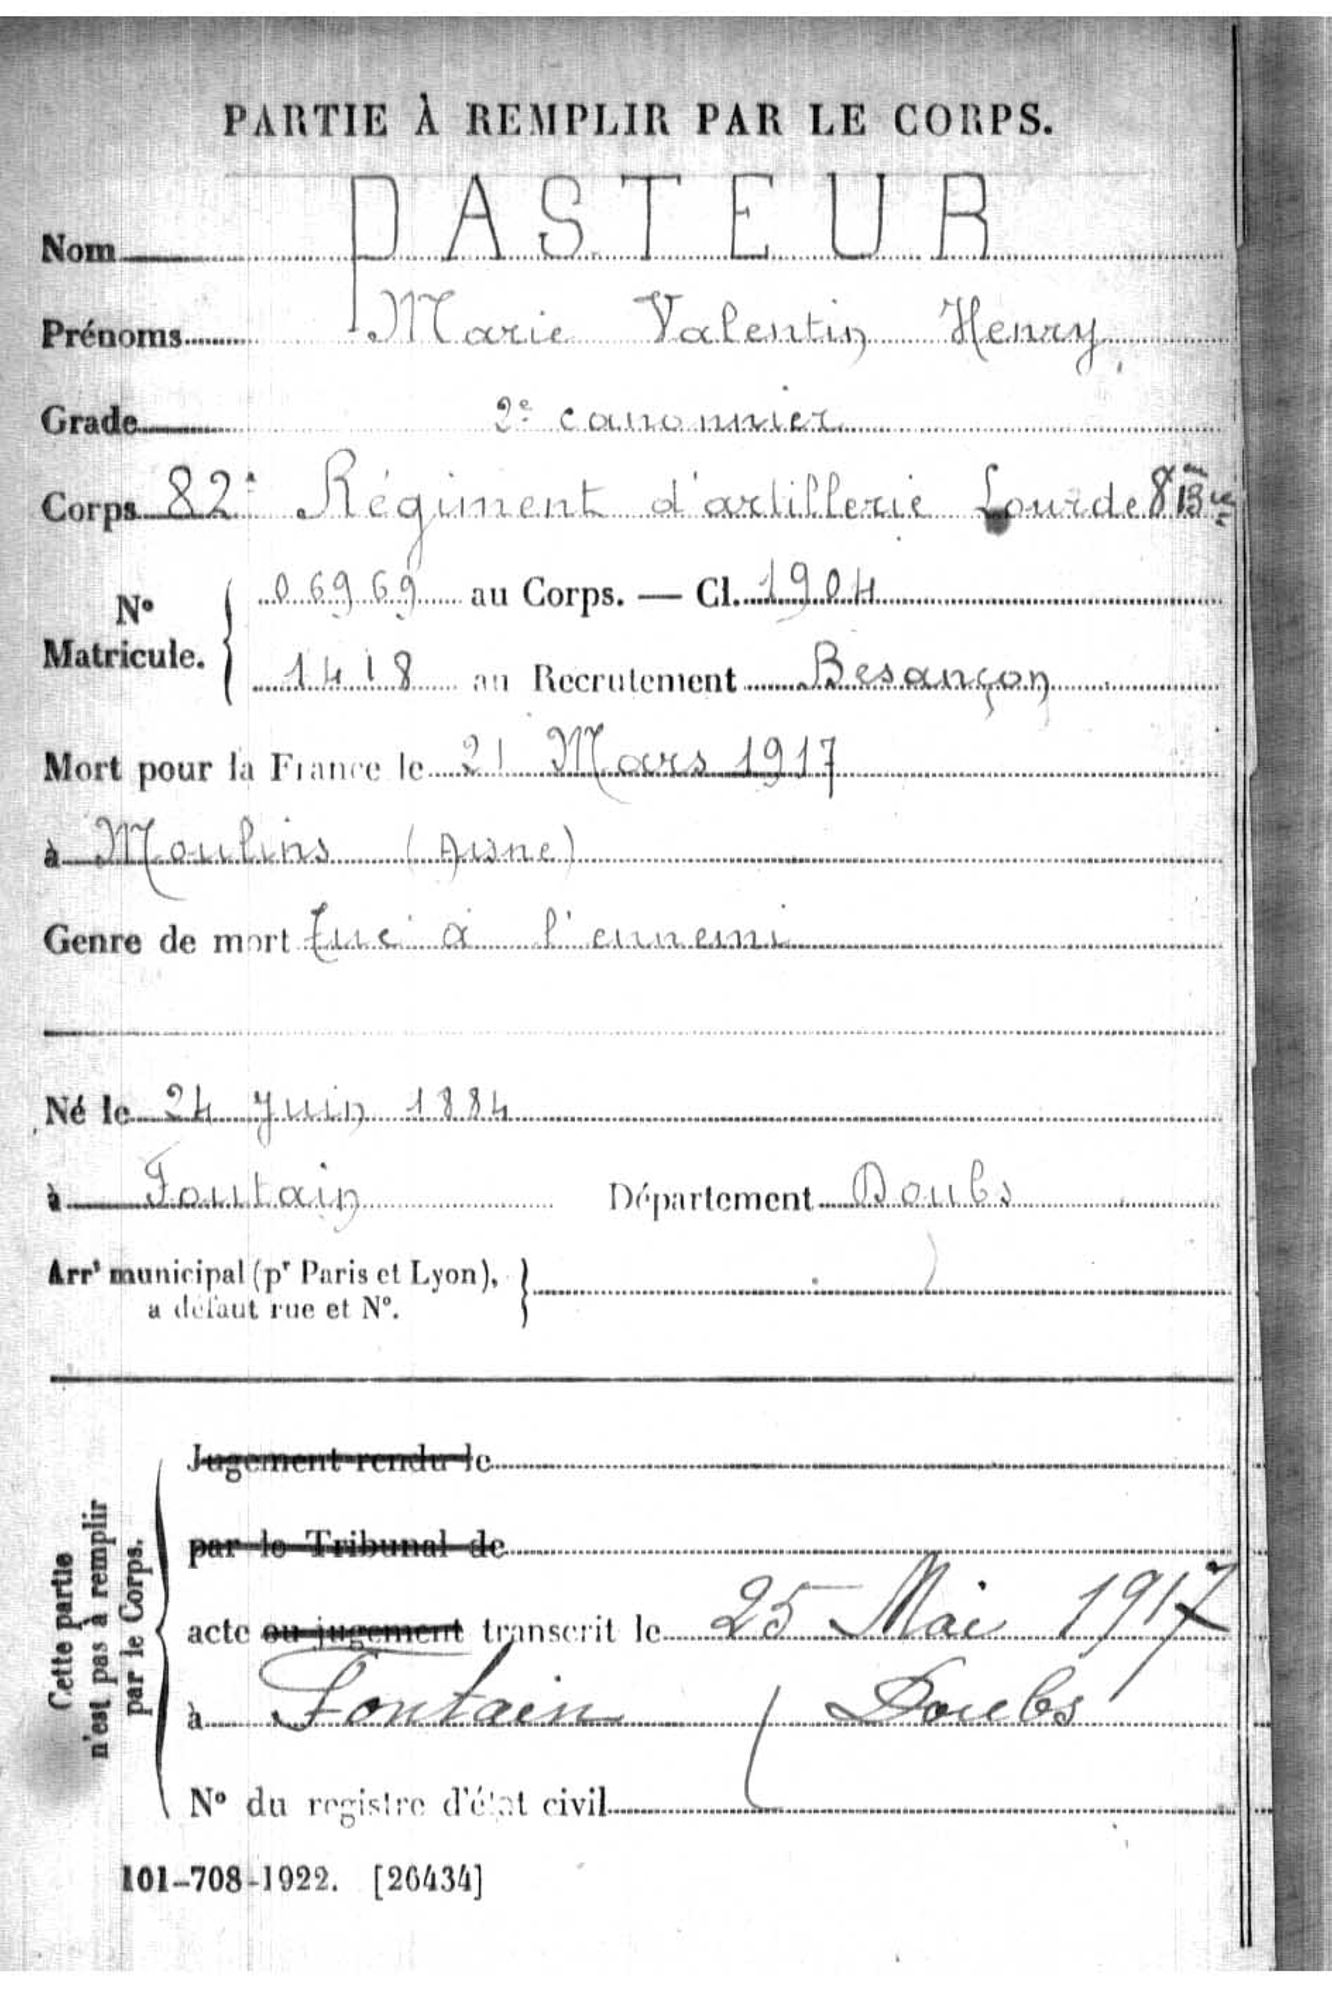 PARTIE À REMPLIR PAR LE CORPS.
Nom PASTEUR
Prénoms Marie Valentin Henry
Grade 2e canonnier
Corps 82e Régiment d'artillerie Lourde 8me Bie
No Matricule. { 06969 au Corps. — Cl. 1904
1418 au Recrutement Besançon
Mort pour la France le 21 Mars 1917
à Moulins (Aisne)
Genre de mort Tué à l'ennemi
Né le 24 Juin 1884
à Fontain Département Doubs
Arrt municipal (pr Paris et Lyon), }
a défaut rue et No.
Cette partie
n'est pas à remplir
par le Corps.
Jugement rendu le
par le Tribunal de
acte ou jugement transcrit le 25 Mai 1917
à Fontain ( Doubs
No du registre d'état civil
101-708-1922. [26434]